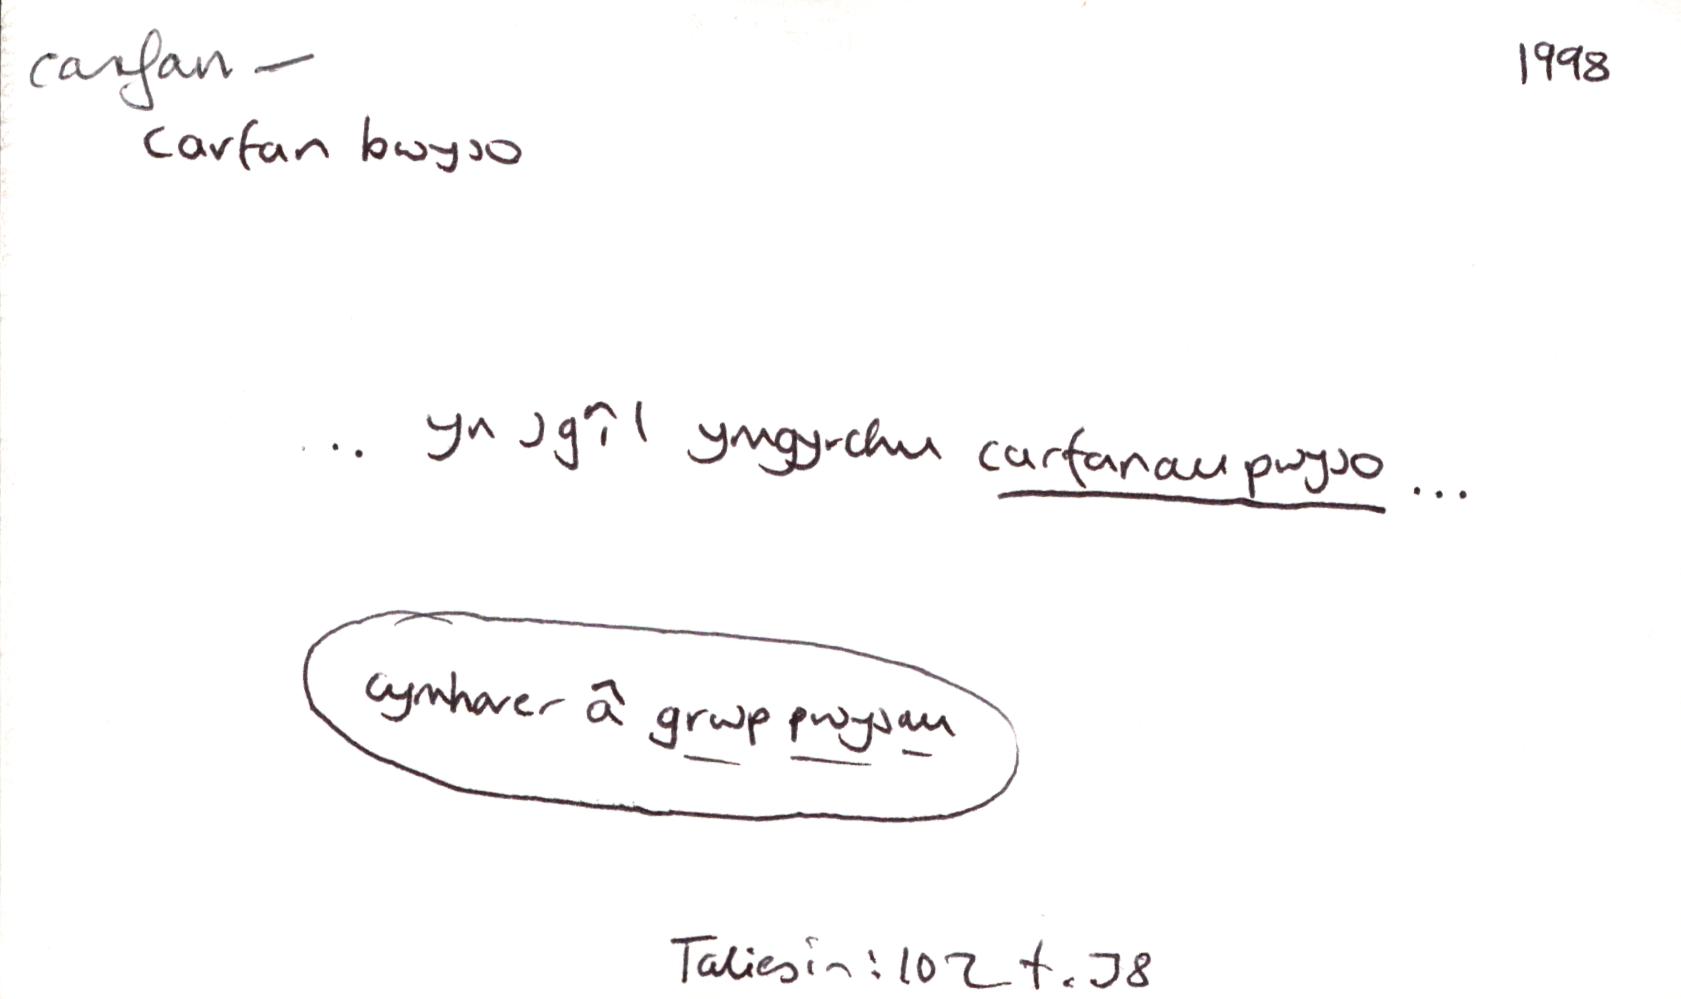 carfan –
1998
carfan bwyso
... yn sgîl ymgyrchu carfanau pwyso ...
cymharer â grwp pwysau
Taliesin: 102 t. 58